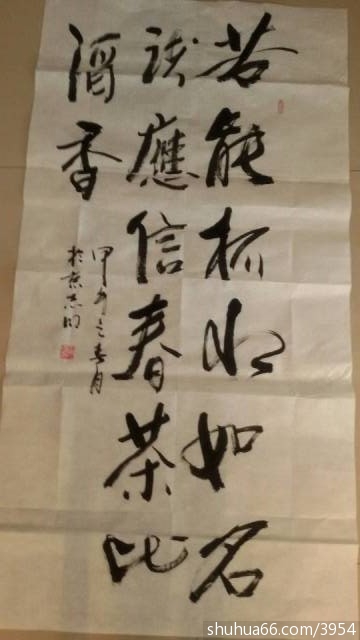 若能杯水如名
淡應信春茶比
酒香
甲午之春月
shuhua66.com/3954